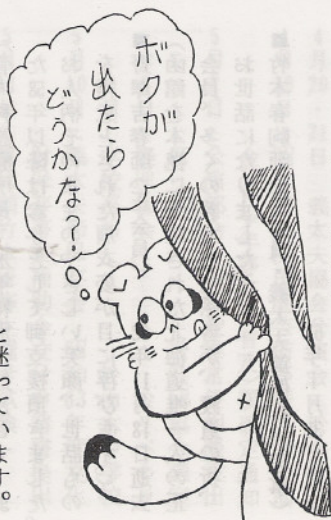 ボクが
出たら
どうかな？
と迷っています。